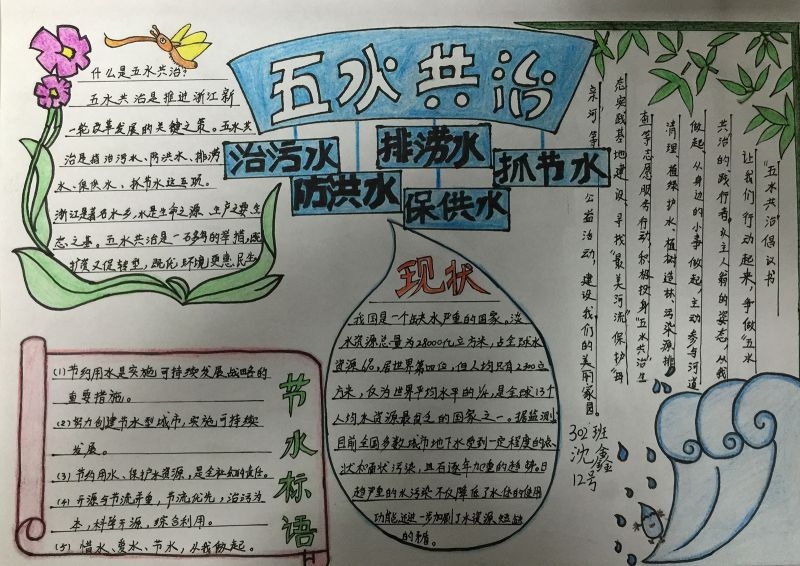 五水共治
治污水
防洪水
排涝水
保供水
抓节水
什么是五水共治?
五水共治是推进浙江新
一轮改革发展的关键之策。五水共
治是指治污水、防洪水、排涝
水、保供水、抓节水这五项。
浙江是著名水乡,水是生命之源、生产之要、生
态之基。五水共治是一石多鸟的举措,既
扩投又促转型,既优环境更惠民生
现状
我国是一个缺水严重的国家。淡
水资源总量为28000亿立方米,占全球水
资源6%,居世界第四位,但人均只有2300立
方米,仅为世界平均水平的1/4,是全球13个
人均水资源最贫乏的国家之一。据监测,
目前全国多数城市地下水受到一定程度的点
状和面状污染,且有逐年加重的趋势。日
趋严重的水污染不仅降低了水体的使用
功能,进一步加剧了水资源短缺
的矛盾。
节水标语
(1)节约用水是实施可持续发展战略的
重要措施。
(2)努力创建节水型城市,实施可持续
发展。
(3)节约用水、保护水资源,是全社会的责任。
(4)开源与节流并重,节流优先,治污为
本,科学开源,综合利用。
(5)惜水、爱水、节水,从我做起。
"五水共治"倡议书
让我们行动起来,争做"五水
共治"的践行者。以主人翁的姿态,从我
做起、从身边的小事做起,主动参与河道
清理、植绿护水、植树造林、污染源排
查等志愿服务行动,积极投身"五水共治"生
态实践基地建设、寻找"最美河流"保护"母
亲河"等公益活动,建设我们的美丽家园。
302班
沈鑫
12号